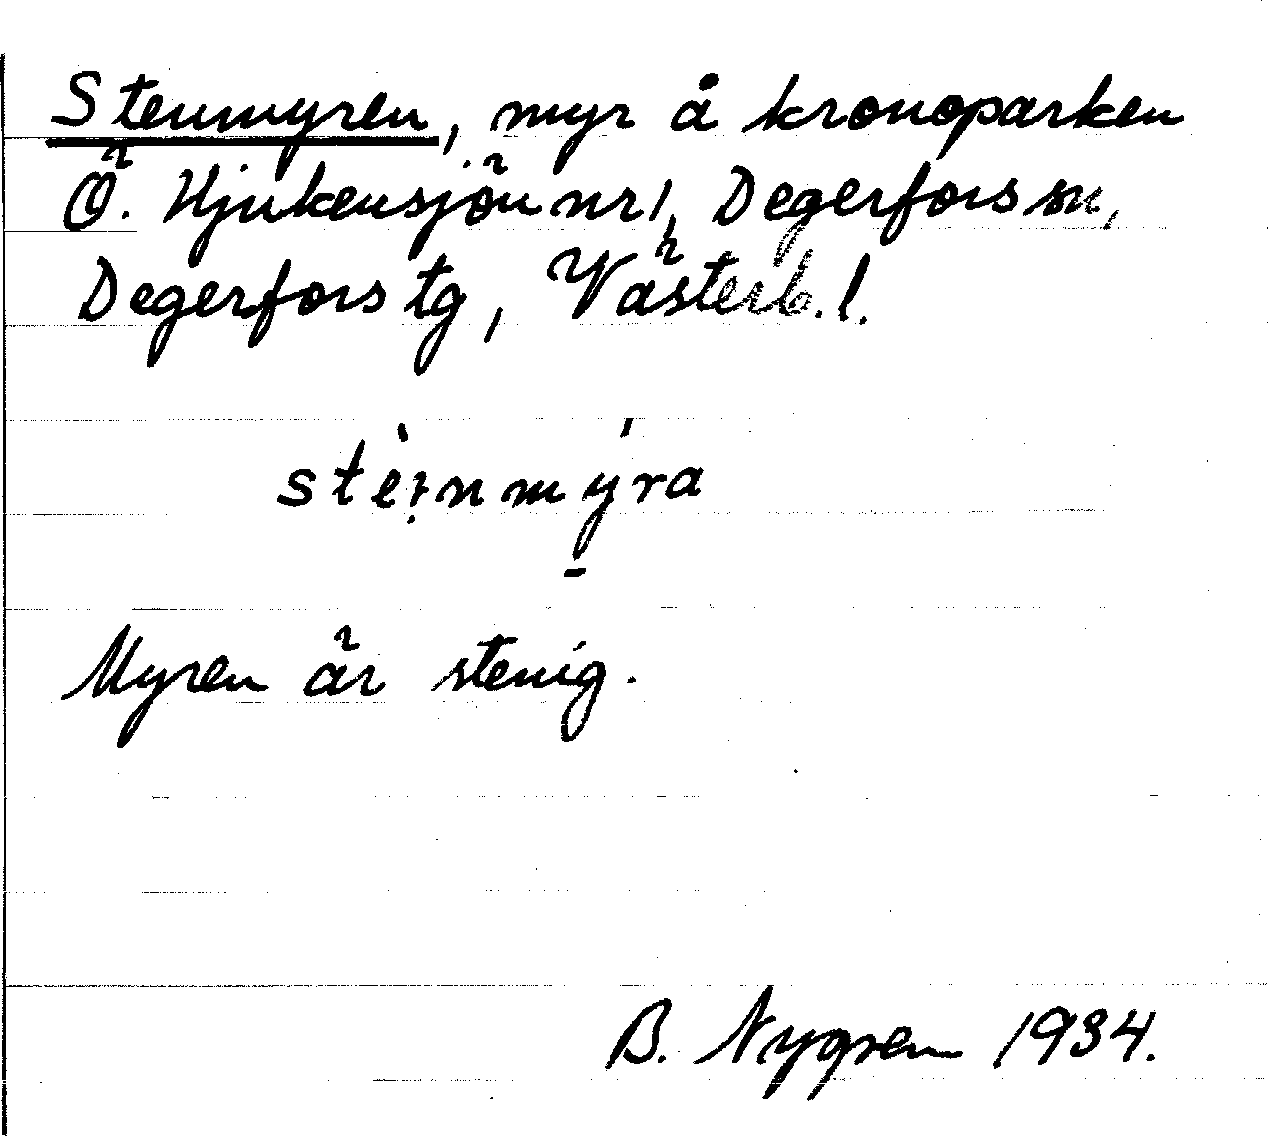 Stenmyren, myr å kronoparken
Ö. Hjukensjön nr 1, Degerfors sn,
Degerfors tg, Västerb. l.
stèi̯nmýra
Myren är stenig.
B. Nygren 1934.